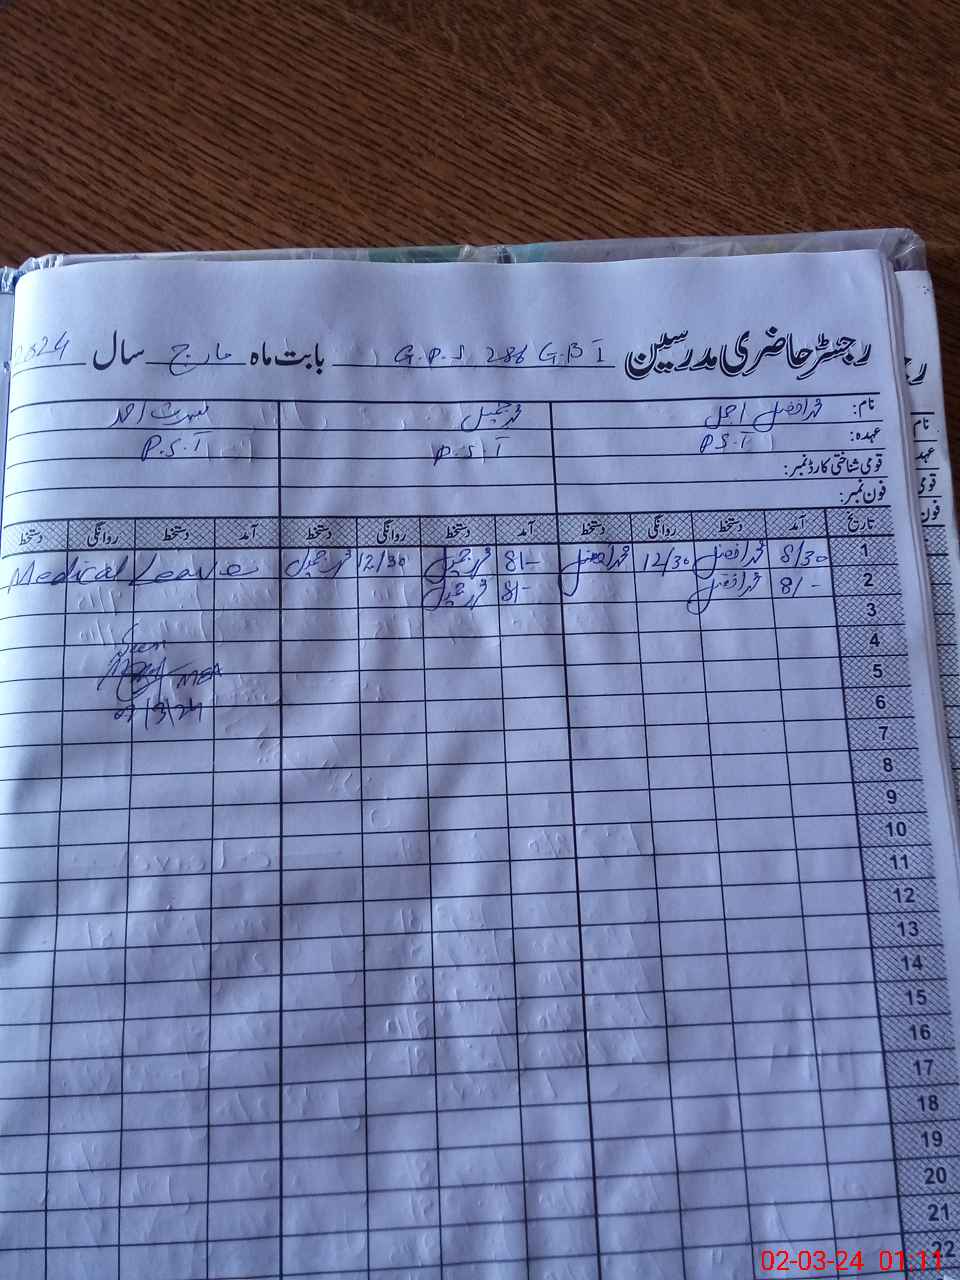 رجسٹر حاضری مدرسین G.P.S 286 G.B I بابت ماہ مارچ سال 2024
نام: محمد افضل اجمل محمد جمیل احمد
عہدہ: P.S.T P.S.T P.S.T
قومی شناختی کارڈ نمبر:
فون نمبر:
تاریخ آمد دستخط روانگی دستخط آمد دستخط روانگی دستخط آمد دستخط روانگی دستخط
1 8/30 محمد افضل 12/30 محمد افضل 8/- محمد جمیل 12/30 محمد جمیل Medical Leave
2 8/- محمد افضل 8/- محمد جمیل
3
4
Seen
5
MEA
6
02/3/24
7
8
9
10
11
12
13
14
15
16
17
18
19
20
21
22
نام
عہد
قومی
فون
02-03-24 01:11